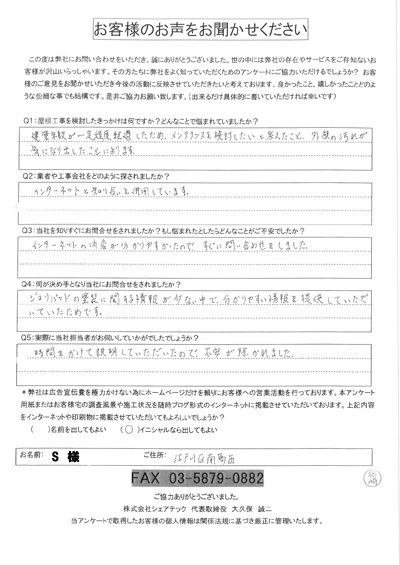 お客様のお声をお聞かせください
この度は弊社にお問い合わせをいただき、誠にありがとうございました。世の中には弊社の存在やサービスをご存知ないお
客様が沢山いらっしゃいます。その方たちに弊社をよく知っていただくためのアンケートにご協力いただけるでしょうか？ お客
様のご意見をお聞かせいただき今後の活動に反映させていただきたいと考えております。良かったこと、嬉しかったことどのよ
うな些細な事でも結構です。是非ご協力お願い致します。（出来るだけ具体的に書いていただければ幸いです）
Q1：屋根工事を検討したきっかけは何ですか？どんなことで悩まれていましたか？
建築年数が一定程度経過したため、メンテナンスを検討したいと考えたこと、外壁の汚れが
気になり出したことによります。
Q2：業者や工事会社をどのように探されましたか？
インターネットと知り合いを併用しています。
Q3：当社を知りすぐにお問合せをされましたか？もし悩まれたとしたらどんなことがご不安でしたか？
インターネットの内容が分かりやすかったので、すぐに問い合わせをしました。
Q4：何が決め手となり当社にお問合せをされましたか？
ジョリパットの塗装に関する情報が少ない中で、分かりやすい情報を提供していただ
いていたためです。
Q5：実際に当社担当者がお伺いしていかがでしたでしょうか？
時間をかけて説明していただいたので、不安が除かれました。
＊弊社は広告宣伝費を極力かけない為にホームページだけを頼りにお客様への営業活動を行っております。本アンケート
用紙またはお客様宅の調査風景や施工状況を随時ブログ形式のインターネットに掲載させていただいております。上記内容
をインターネットや印刷物に掲載させていただいてもよろしいでしょうか？
（　）名前を出してもよい　（○）イニシャルなら出してもよい
お名前： S 様　ご住所： 江戸川区南葛西
FAX 03-5879-0882
ご協力ありがとうございました。
株式会社シェアテック 代表取締役 大久保 誠二
当アンケートで取得したお客様の個人情報は関係法規に基づき厳正に管理いたします。